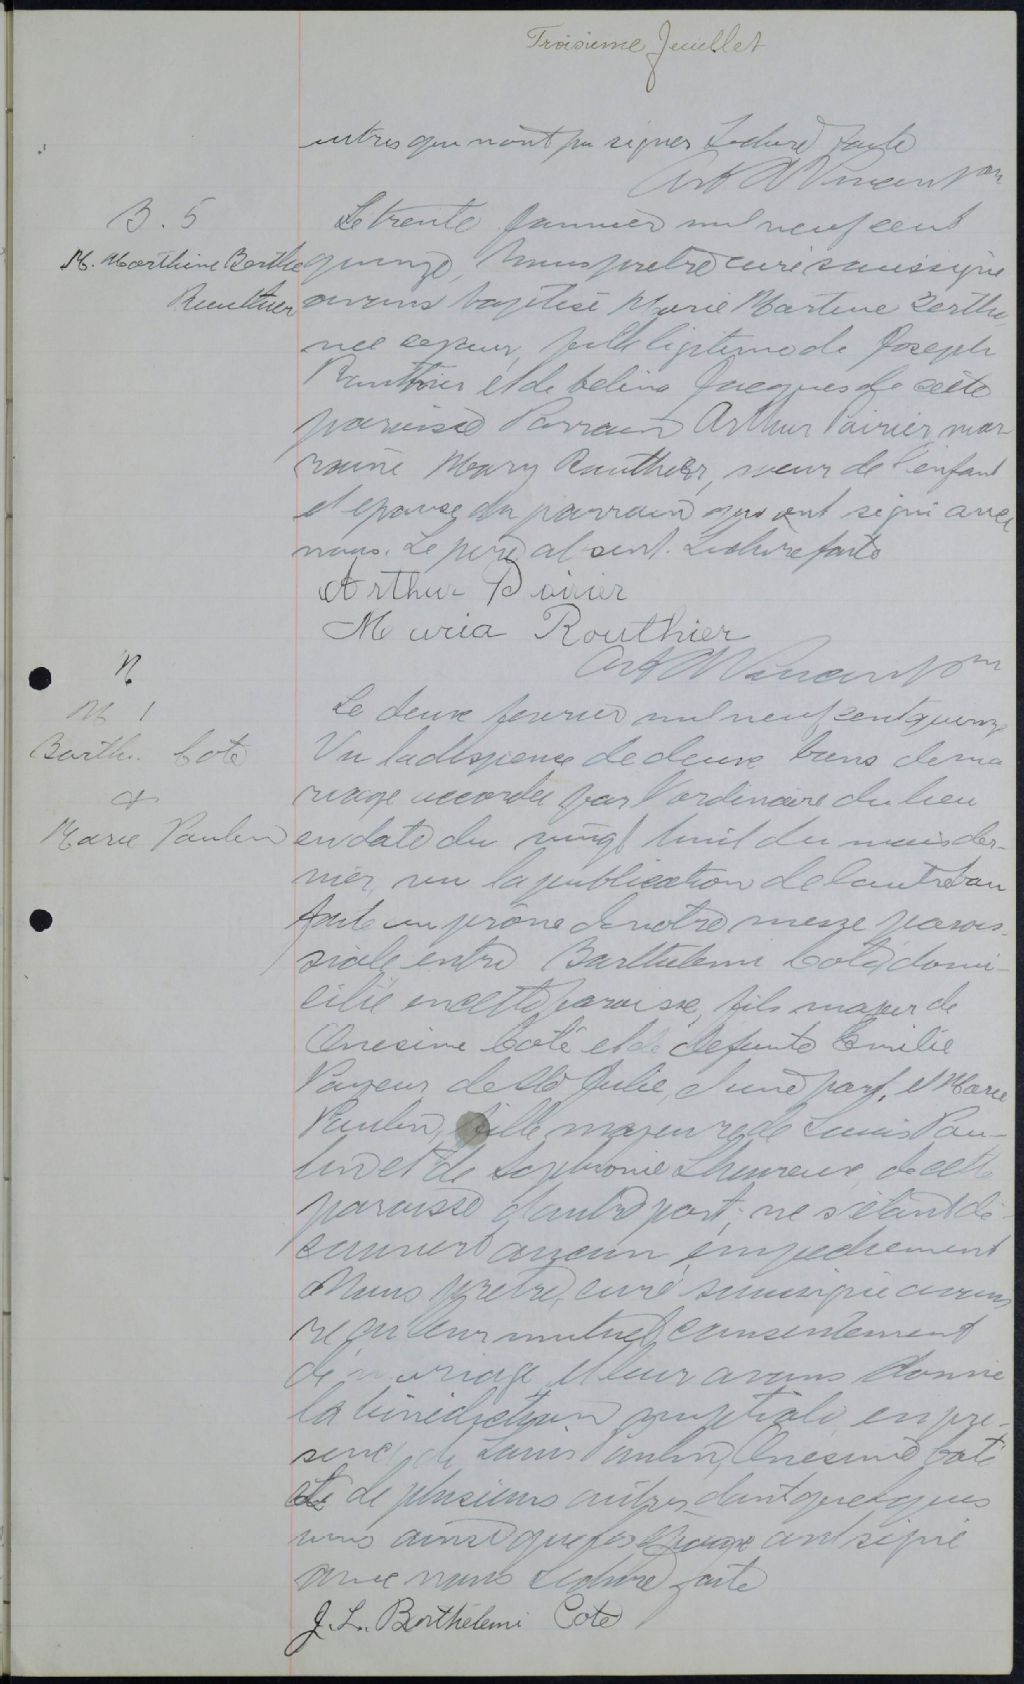 Troisieme feuillet
autres qui n'ont pu signer Lecture faite
Art A Vincent ptre
B. 5
Le trente Janvier mil neuf cent
M. Marthine Berthe
quinze, Nous pretre curé soussigné
Routhier
avons baptisé Marie Martine Berthe
née ce jour, fille legitime de Joseph
Routhier et de Celina Jacques de cette
paroisse Parrain Arthur Poirier, mar
raine Mary Routhier, soeur de l'enfant
et epouse du parrain qui ont signé avec
nous. Le pere absent. Lecture faite
Arthur Poirier
Maria Routhier
Art A Vincent ptre
M 1
Le deux fevrier mil neuf cent quinze
Barth. Coté
Vu la dispense de deux bans de ma
&
riage accordée par l'ordinaire du lieu
Marie Paulin
en date du vingt huit du mois der-
nier, vu la publication de l'autre ban
faite au prône de notre messe parois-
siale entre Barthelemi Coté, domi-
cilié en cette paroisse, fils majeur de
Onesime Coté et de defunte Emilie
Payeur de Ste Julie, d'une part, et Marie
Paulin, fille majeure de Louis Pau-
lin et de Sophronie Lheureux de cette
paroisse d'autre part; ne s'étant dé-
couvert aucun empechement
Nous pretre, curé soussigné avons
reçu leur mutuel consentement
de mariage et leur avons donné
la bénédiction nuptiale en pre-
sence de Louis Paulin, Onesime Coté
et de plusieurs autres dont quelques
uns ainsi que les époux ont signé
avec nous Lecture faite
J. L. Barthélemi Coté